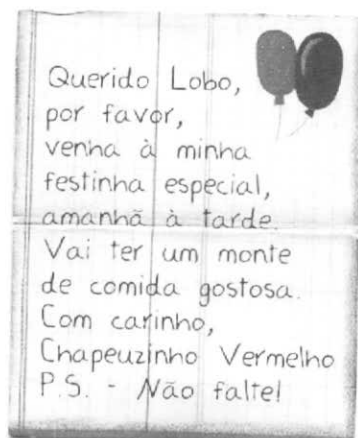 Querido Lobo,
por favor,
venha à minha
festinha especial,
amanhã à tarde.
Vai ter um monte
de comida gostosa.
Com carinho,
Chapeuzinho Vermelho
P.S. - Não falte!